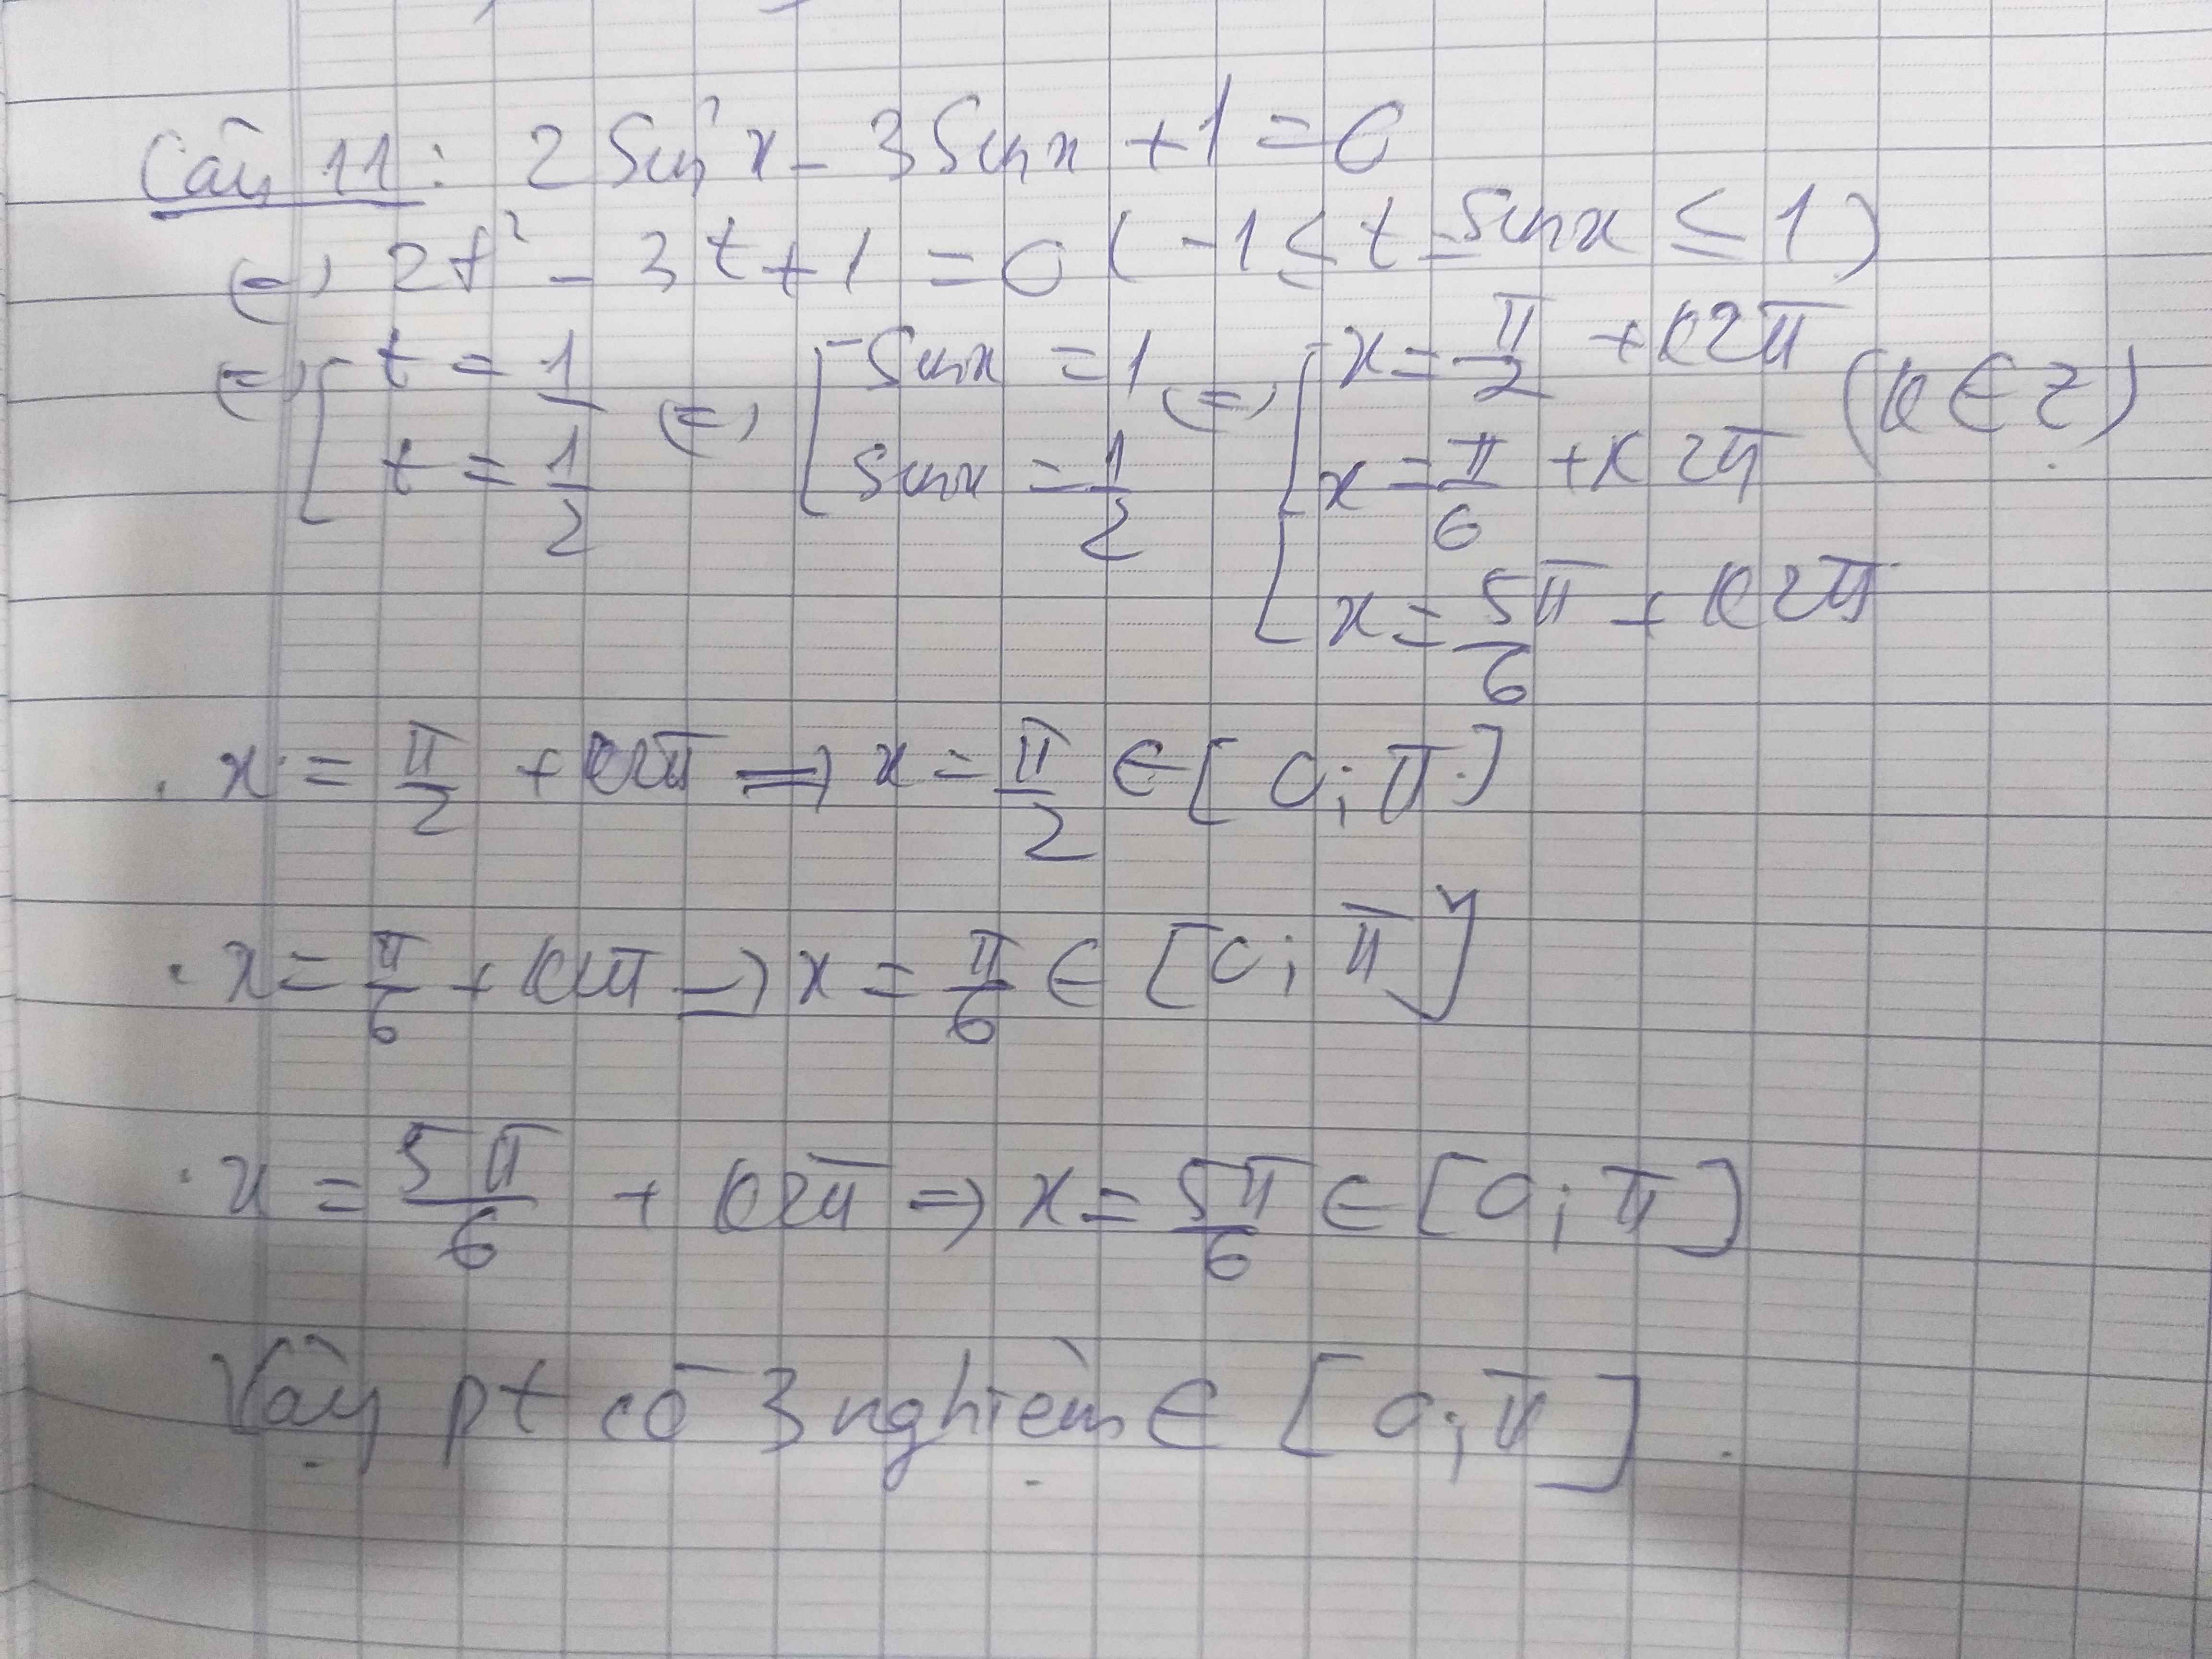 Câu 11: 2 Sin²x - 3 Sin x + 1 = 0
(=) 2t² - 3t + 1 = 0 ( -1 ≤ t = Sin x ≤ 1 )
(=) [ t = 1 (=) [ Sin x = 1 (=) [ x = π/2 + k2π
t = 1/2 Sin x = 1/2 x = π/6 + k2π (k ∈ Z)
x = 5π/6 + k2π
. x = π/2 + k2π => x = π/2 ∈ [0; π]
. x = π/6 + k2π => x = π/6 ∈ [0; π]
. x = 5π/6 + k2π => x = 5π/6 ∈ [0; π]
Vậy pt có 3 nghiệm ∈ [0; π].